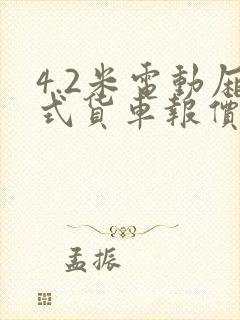 4.2米電動厢
式貨車報價
孟振